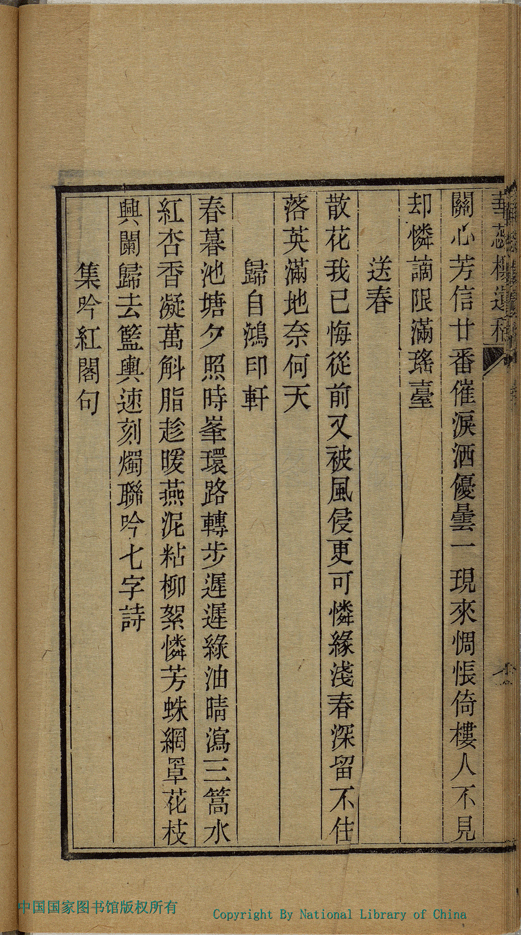 關心芳信廿番催淚洒優曇一現來惆悵倚樓人不見
却憐謫限滿瑤臺
送春
散花我已悔從前又被風侵更可憐緣淺春深留不住
落英滿地奈何天
歸自鴻印軒
春暮池塘夕照時峯環路轉步遲遲綠油晴瀉三篙水
紅杏香凝萬斛脂趁暖燕泥粘柳絮憐芳蛛網罩花枝
興闌歸去籃輿速刻燭聯吟七字詩
集吟紅閣句
中国国家图书馆版权所有
Copyright By National Library of China